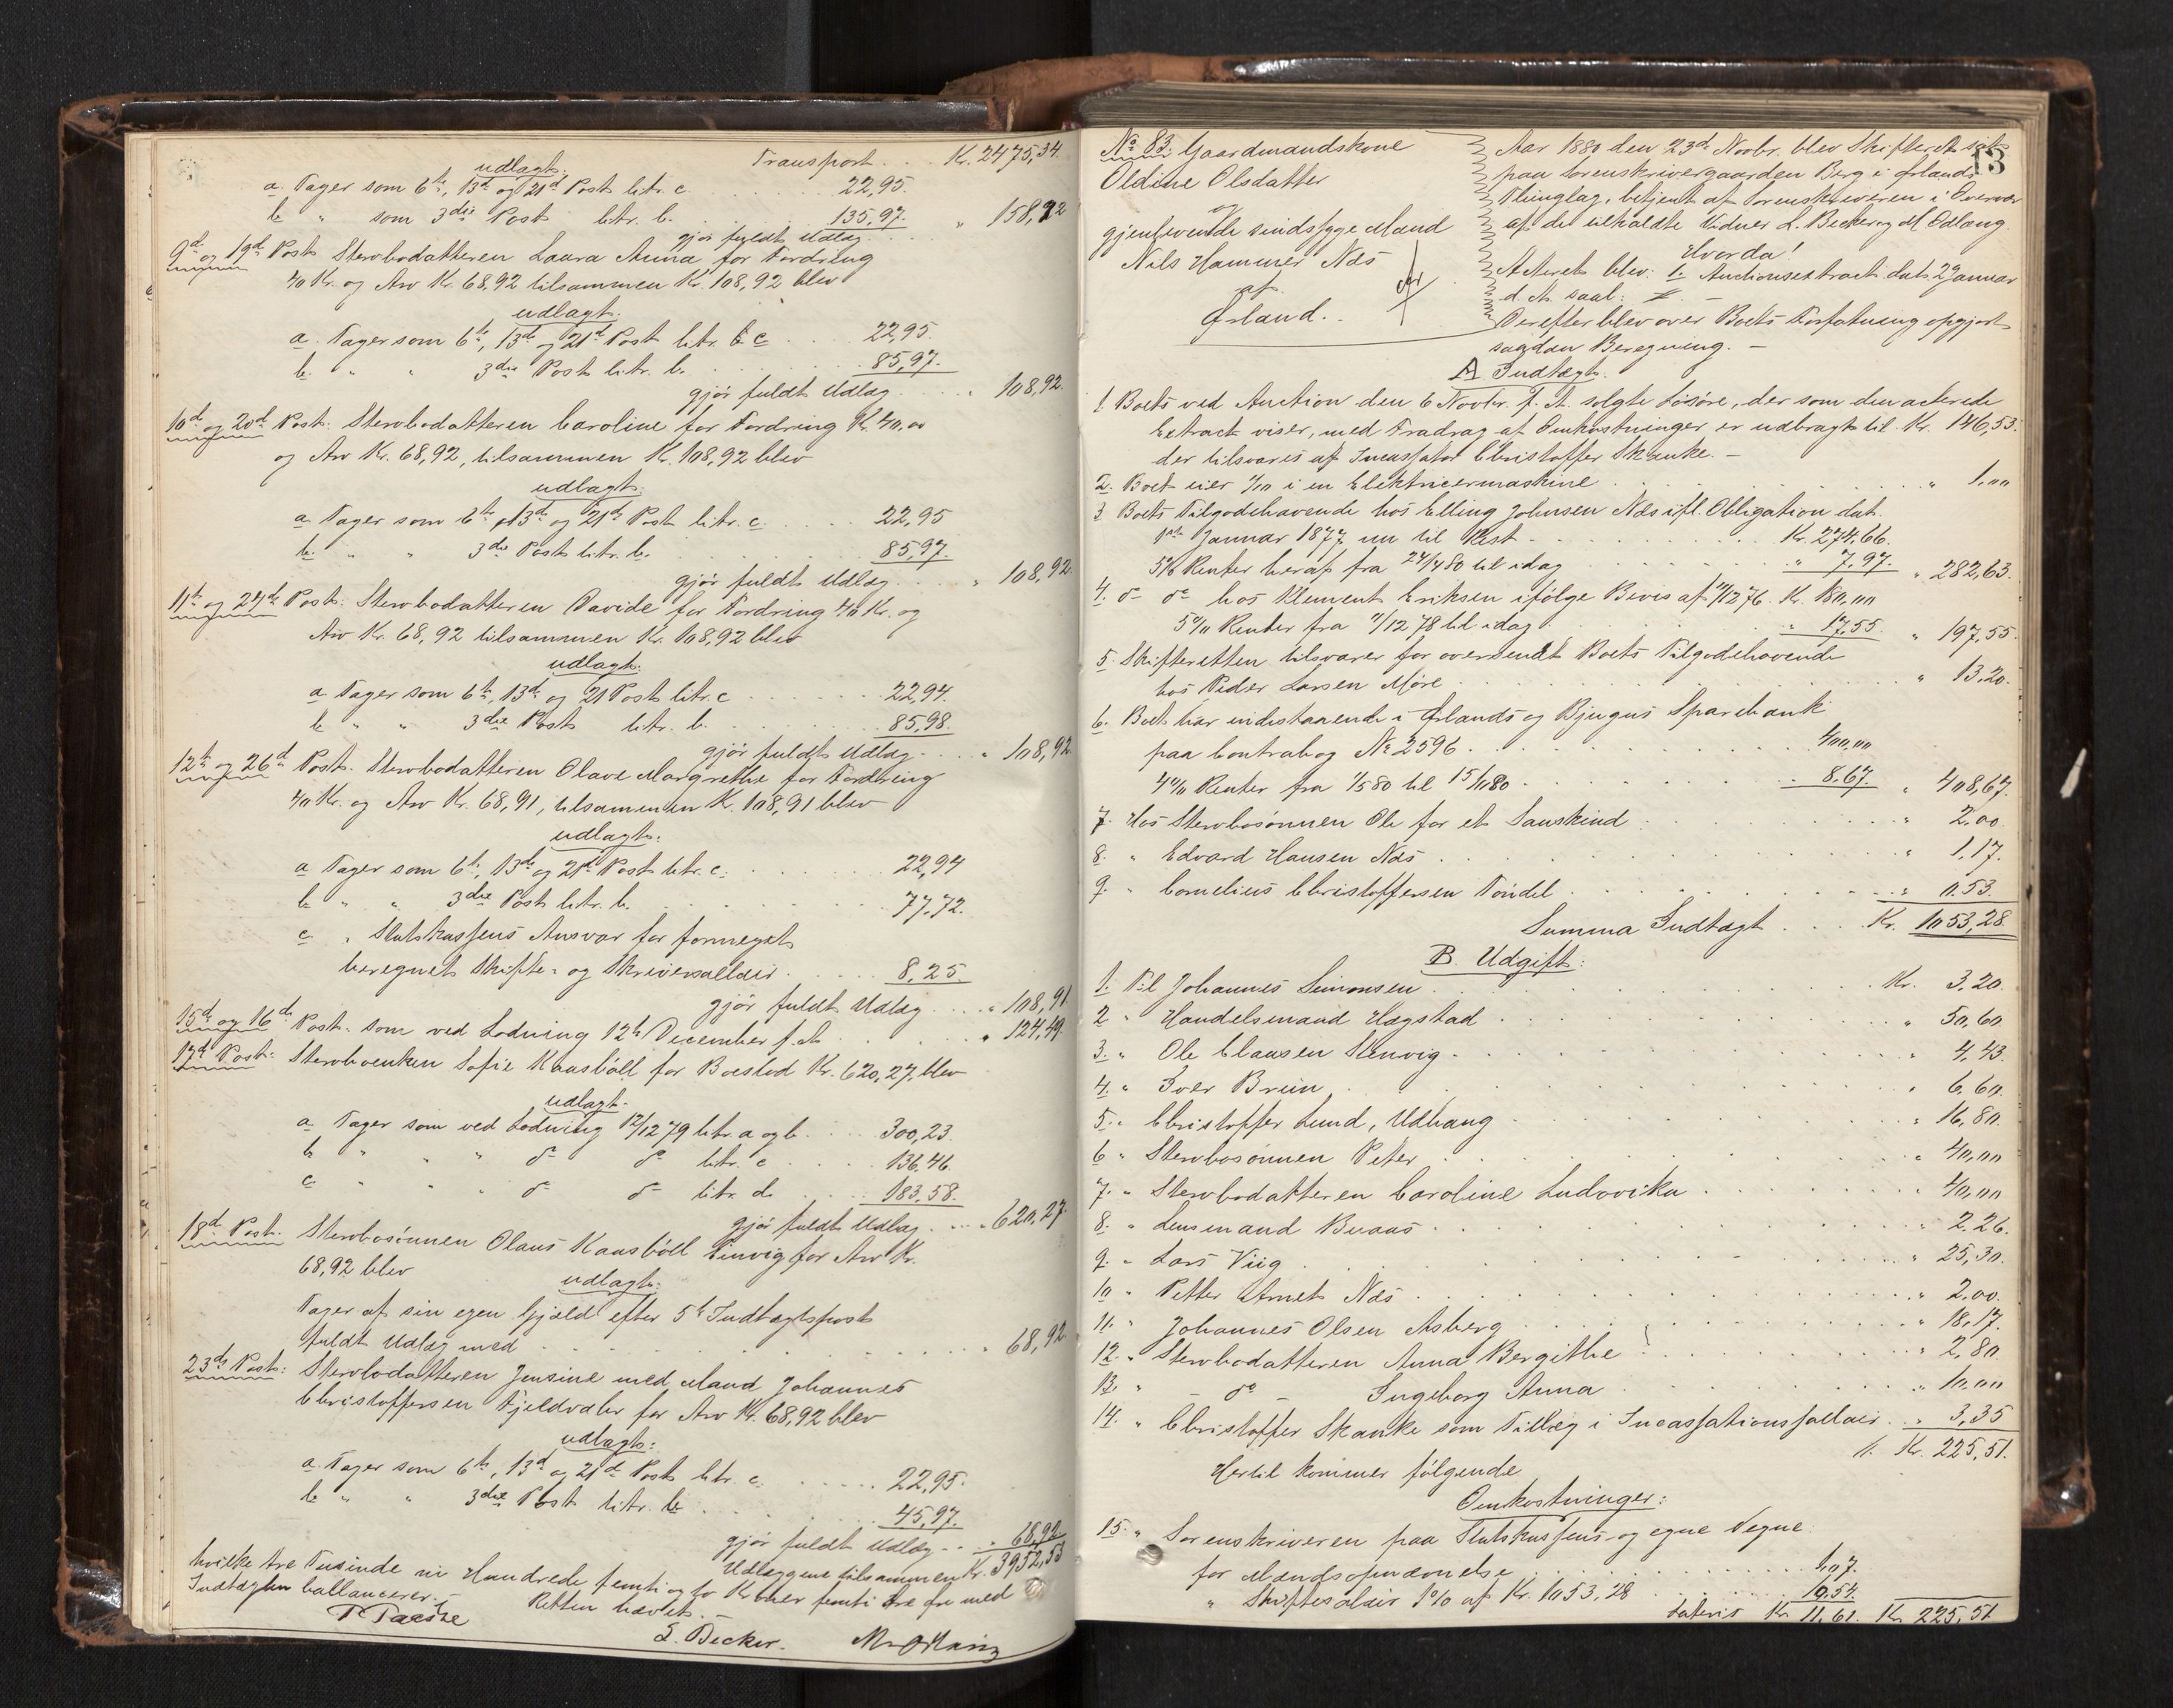 Transport . . Kr. 2475,34.
udlagt:
a. Tager som 6te, 13de og 21de Post litr. c . . . 22,95.
b. " som 3die Post litr. b. . . . 135,97.
gjør fuldt Udlæg . . . " 158,92
9de og 19de Post Sterbodatteren Laura Anna for Fordring
40 Kr. og Arv Kr. 68,92 tilsammen Kr. 108,92 blev
udlagt:
a. Tager som 6te, 13de og 21de Post litr. c . . . 22,95.
b. " " 3die Post litr. b. . . . 85,97.
gjør fuldt Udlæg . . . " 108,92.
10de og 20de Post: Sterbodatteren Caroline for Fordring Kr. 40,00
og Arv Kr. 68,92, tilsammen Kr. 108,92 blev
udlagt:
a Tager som 6te, 13de og 21de Post litr. c. . . . 22,95
b. " " 3die Post litr. b. . . . 85,97.
gjør fuldt Udlæg . . . " 108,92.
11te og 24de Post: Sterbodatteren Davide for Fordring 40 Kr. og
Arv Kr. 68,92 tilsammen Kr. 108,92 blev
udlagt:
a Tager som 6te, 13de og 21 Post litr. c . . . 22,94.
b " " 3die Post litr. b. . . . 85,98.
gjør fuldt Udlæg . . . " 108,92
12te og 26de Post. Sterbodatteren Olave Margrethe for Fordring
40 Kr. og Arv Kr. 68,91, tilsammen Kr. 108,91 blev
udlagt:
a Tager som 6te, 13de og 21de Post litr. c. . . . 22,94
b " " 3die Post litr. b. . . . 77,72.
c. " Statskassens Ansvar for formeget
beregnet Skifte- og Skriversallair . . . 8,25.
gjør fuldt Udlæg . . . " 108,91.
15de og 16de Post. som ved Lodning 12te December f. A. . . . " 124,49.
17de Post: Sterboenken Sofie Kaasböll for Boeslod Kr. 620,27, blev
udlagt:
a. Tager som ved Lodning 12/12 79 litr. a og b. . . 300,23.
b " " " do do litr. c . . . 136,46.
c " " " do do litr. d. . . . 183,58.
gjør fuldt Udlæg . . . " 620,27.
18de Post. Sterbosönnen Olaus Kaasböll for Arv Kr.
68,92 blev
udlagt:
Tager af sin egen Gjæld efter 5te Indtægtspost
fuldt Udlæg med . . . " 68,92
23de Post: Sterbodatteren Jensine med Mand Johannes
Christoffersen Fjeldvær for Arv Kr. 68,92 blev
udlagt:
a. Tager som 6te, 13de og 21de Post litr. c. . . . 22,95.
b " " 3die Post litr. b . . . 45,97.
gjør fuldt Udlæg . . " 68,92
Udlæggene tilsammen Kr. 3952,53
hvilke tre Tusinde ni Hundrede femti og to Kroner femti tre Øre med
Indtægten ballancerer.
Retten hævet.
L. Becker.
13
No 83. Gaardmandskone
Oldine Olsdatter
og
gjenlevende sindssyge Mand
Nils Hammer Næs
af
Ørland.
Aar 1880 den 23de Novbr. blev Skifteret sat
paa Sorenskrivergaarden Berg i Ørlands
Thinglag, betjent af Sorenskriveren i Overvær
af de tilkaldte Vidner L. Becker og M Ødlang.
Hvorda!
Acteret blev: 1. Auctionsextract dat. 2 Januar
d. A. saal:
Derefter blev over Boets Forfatning opgjort
saadan Beregning. –
A Indtægt.
1. Boets ved Auction den 6 Novbr. f. A. solgte Løsøre, der som den acterede
Extract viser, med Fradrag af Omkostninger er udbragt til Kr. 146,53.
der tilsvares af Incassator Christoffer Skanke. –
2. Boet eier 1/10 i en Elektricermaskine . . . " 1,00
3 Boets Tilgodehavende hos Elling Johnsen Næs ifl. Obligation dat.
1ste Januar 1877, nu til Rest . . . Kr. 274,66.
5% Renter heraf fra 24/4 80 til idag . . . " 7,97. " 282,63.
4. do do hos Klement Eriksen ifølge Bevis af 12/12 76. Kr. 180,00
5% Renter fra 11/12 78 til idag . . . " 17,55. " 197,55.
5. Skifteretten tilsvarer for oversendt Boets Tilgodehavende
hos Peder Larsen Møre . . . " 13,20.
6. Boet har indestaaende i Ørlands og Bjugns Sparebank
paa Contrabog No 2596 . . . 400,00
4% Renter fra 1/5 80 til 15/11 80 . . . 8,67. " 408,67.
7. Hos Sterbosönnen Ole for et Saueskind . . . " 2,00
8. " Edvard Hansen Næs . . . " 1,17.
9. " Cornelius Christoffersen Tøndel . . . " 0.53.
Summa Indtægt . . . Kr. 1053,28.
B. Udgift:
1. Til Johannes Simonsen . . . Kr. 3,20.
2 " Handelsmand Hægstad . . . " 50,60
3. " Ole Clausen Stenvig . . . " 4,43.
4. " Iver Brein . . . " 6,60.
5. " Christoffer Lund, Udhaug . . . " 16,80.
6 " Sterbosönnen Peter . . . " 40,00
7. " Sterbodatteren Caroline Ludovika . . . " 40,00
8. " Lensmand Buaas . . . " 2,26.
9. " Lars Viig . . . " 25,30.
10 " Petter Arnet Næs . . . " 2,00.
11. " Johannes Olsen Asberg . . . " 18,17.
12. " Sterbodatteren Anna Bergithe . . . " 2,80.
13. " – do – Ingeborg Anna . . . " 10,00
14. " Christoffer Skanke som Tillæg i Incassationssallair . . " 3,35
Kr. 225,51.
Hertil kommer følgende
Omkostninger:
15. " Sorenskriveren paa Statskassens og egne Vegne:
for Mandsopnævnelse . . . 1,07.
" Skiftesalair 1% af Kr. 1053,28 . . . 10,54.
Lateris Kr. 11,61. Kr. 225,51.